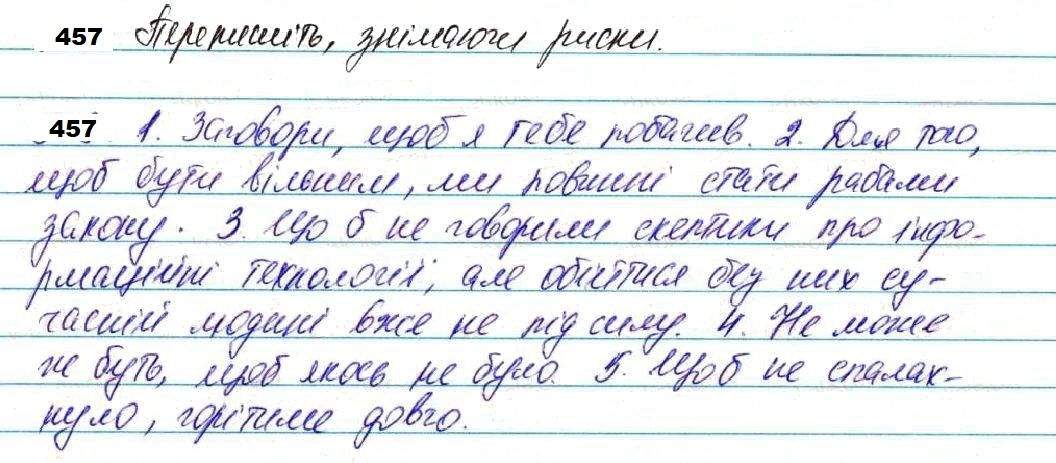 457 Перепишіть, знімаючи риски.
457 1. Заговори, щоб я тебе побачив. 2. Для того,
щоб бути вільним, ми повинні стати рабами
закону. 3. Що б не говорили скептики про інфо-
рмаційні технології, але обійтися без них су-
часній людині вже не під силу. 4. Не може
ж буть, щоб якось не було. 5. Що б не спалах-
нуло, горітиме довго.